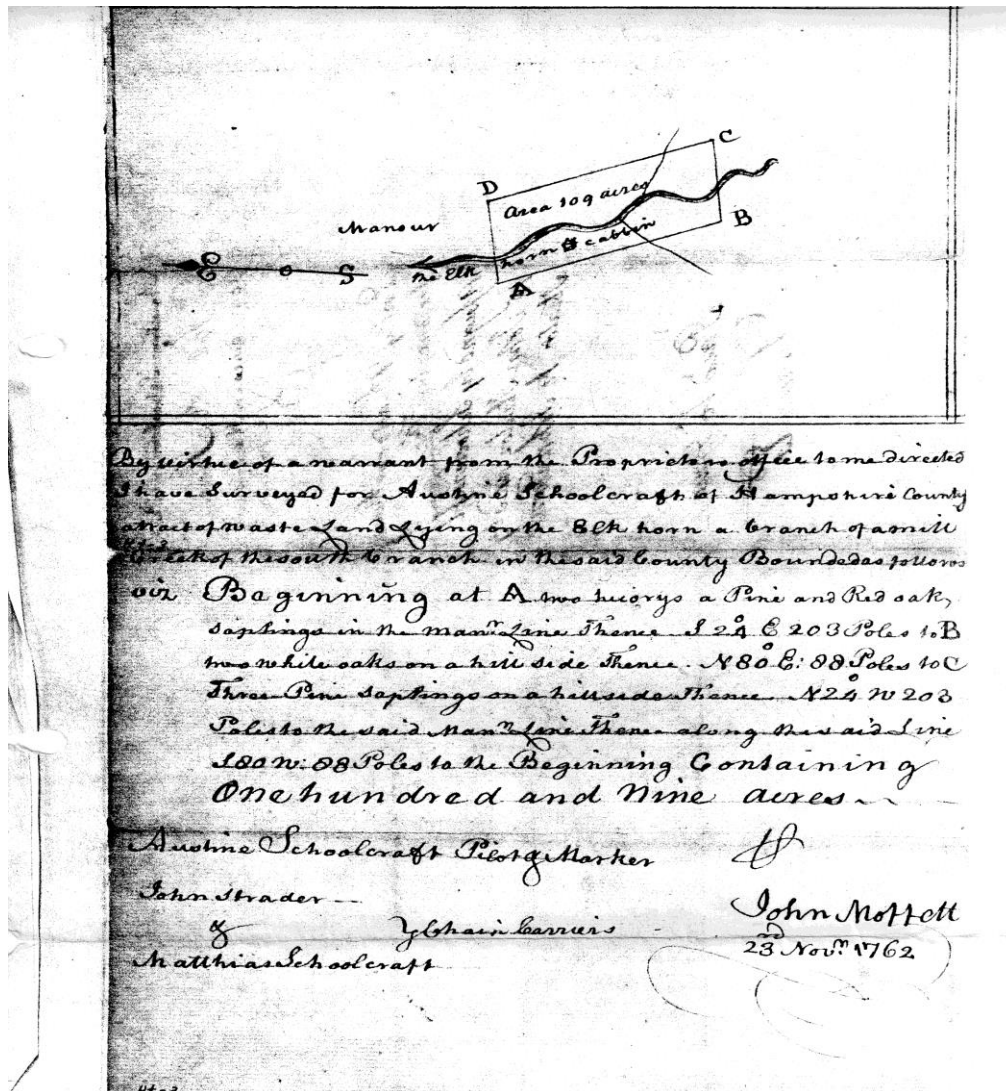 C
D
Area 109 acres
Manour
B
horn cabbin
the Elk
A
S
By virtue of a warrant from the Proprietors office to me directed
I have Surveyed for Austine Schoolcraft of Hampshire County
a tract of waste Land Lying on the Elk horn a branch of a mill
Creek of the south branch in the said County Bounded as follows
viz Beginning at A two hicorys a Pine and Red oak
saplings in the Manr. Line Thence S 24° E 203 Poles to B
two white oaks on a hill side Thence N80° E: 88 Poles to C
Three Pine Saplings on a hill side Thence N24° W 203
Poles to the said Manr. Line Thence along the said Line
S80 W: 88 Poles to the Beginning Containing
One hundred and Nine acres
Austine Schoolcraft Pilot & Marker
John Strader
John Moffett
& Chain Carriers
23rd Novr. 1762
Matthias Schoolcraft